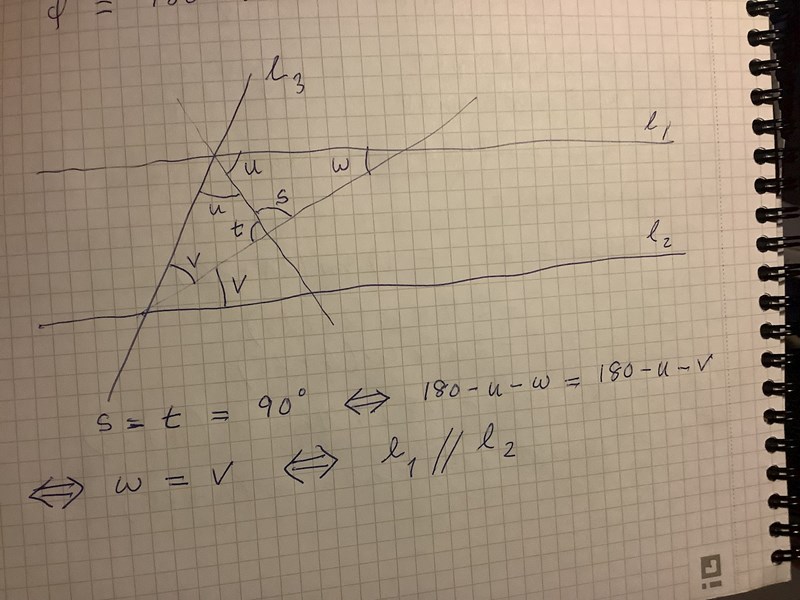 l3
l1
u
w
u
s
t
l2
v
v
s = t = 90° ⇔ 180 - u - w = 180 - u - v
⇔ w = v ⇔ l1 // l2